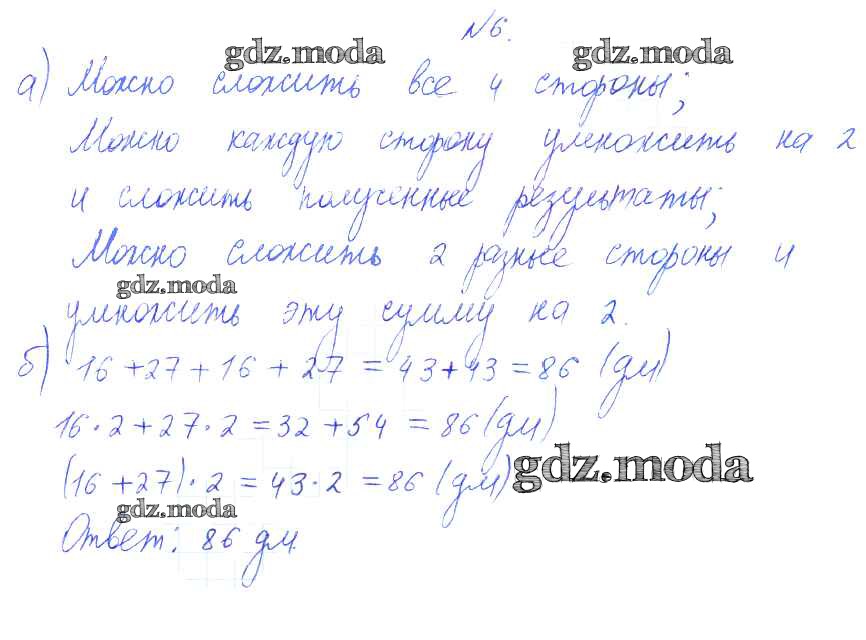 №6.
gdz.moda gdz.moda
а) Можно сложить все 4 стороны;
Можно каждую сторону умножить на 2
и сложить полученные результаты;
Можно сложить 2 разные стороны и
gdz.moda
умножить эту сумму на 2.
б) 16 + 27 + 16 + 27 = 43 + 43 = 86 (дм)
16 · 2 + 27 · 2 = 32 + 54 = 86 (дм)
gdz.moda
(16 + 27) · 2 = 43 · 2 = 86 (дм)
gdz.moda
Ответ: 86 дм.